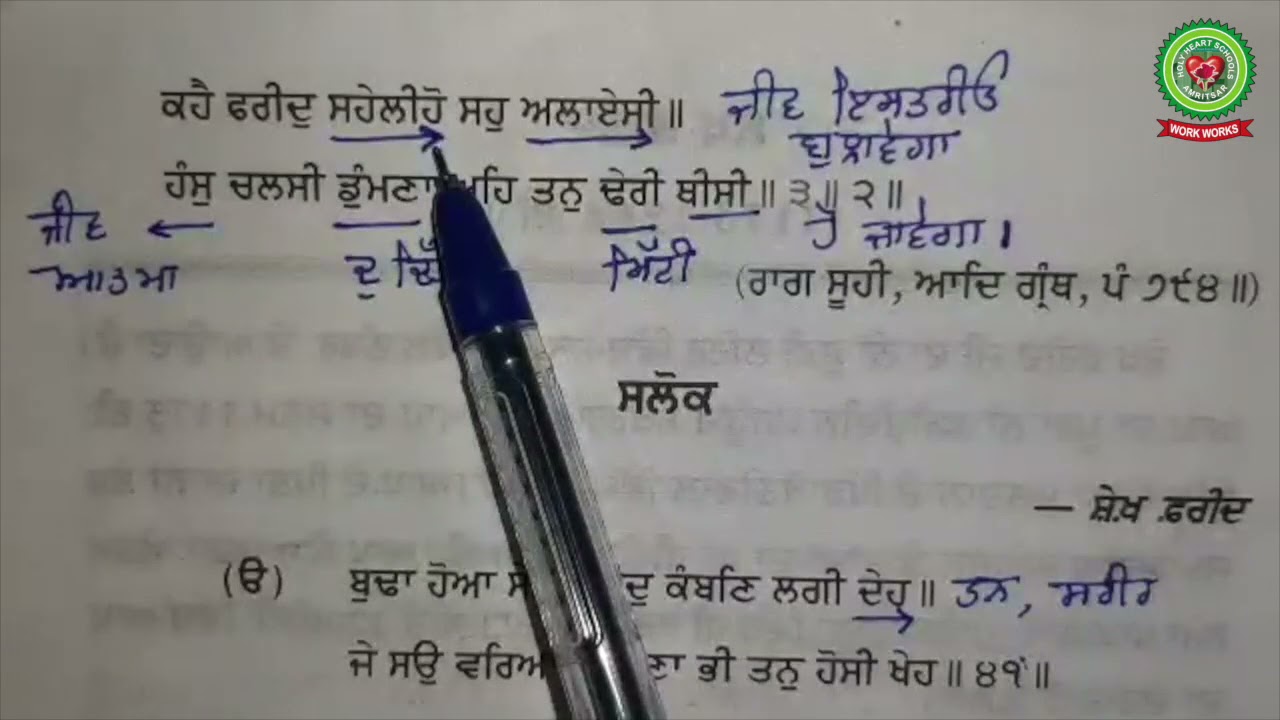 ਕਹੈ ਫਰੀਦੁ ਸਹੇਲੀਹੋ ਸਹੁ ਅਲਾਏਸੀ ॥ ਜੀਵ ਇਸਤਰੀਓ
ਬੁਲਾਵੇਗਾ
ਹੰਸੁ ਚਲਸੀ ਡੁੰਮਣਾ ਤਨੁ ਢੇਰੀ ਥੀਸੀ ॥ ੩ ॥ ੨ ॥
ਜੀਵ ਹੋ ਜਾਵੇਗਾ ।
ਆਤਮਾ ਮਿੱਟੀ
(ਰਾਗ ਸੂਹੀ, ਆਦਿ ਗ੍ਰੰਥ, ਪੰ ੭੯੪ ॥)
ਸਲੋਕ
— ਸ਼ੇਖ਼ ਫ਼ਰੀਦ
(ੳ) ਬੁਢਾ ਹੋਆ ਕੰਬਣਿ ਲਗੀ ਦੇਹ ॥ ਤਨ, ਸਰੀਰ
ਜੇ ਸਉ ਭੀ ਤਨੁ ਹੋਸੀ ਖੇਹ ॥ ੪੧ ॥
HOLY HEART SCHOOLS
AMRITSAR
WORK WORKS